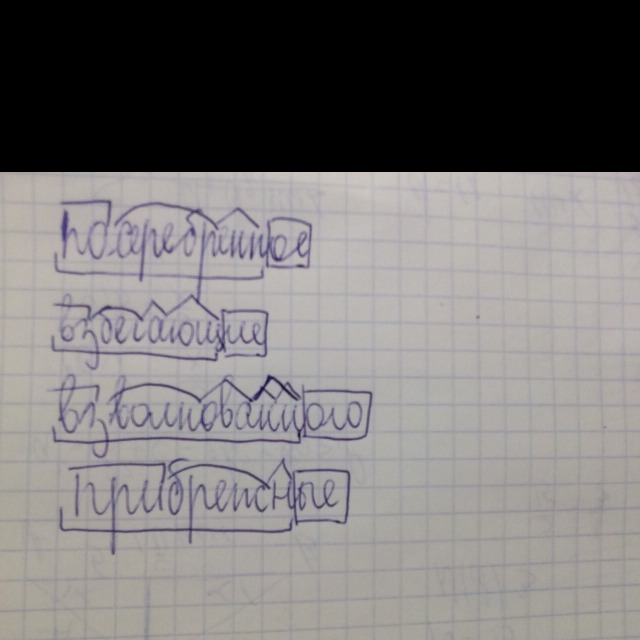 посеребренное
взбегающие
взволнованного
прибрежные